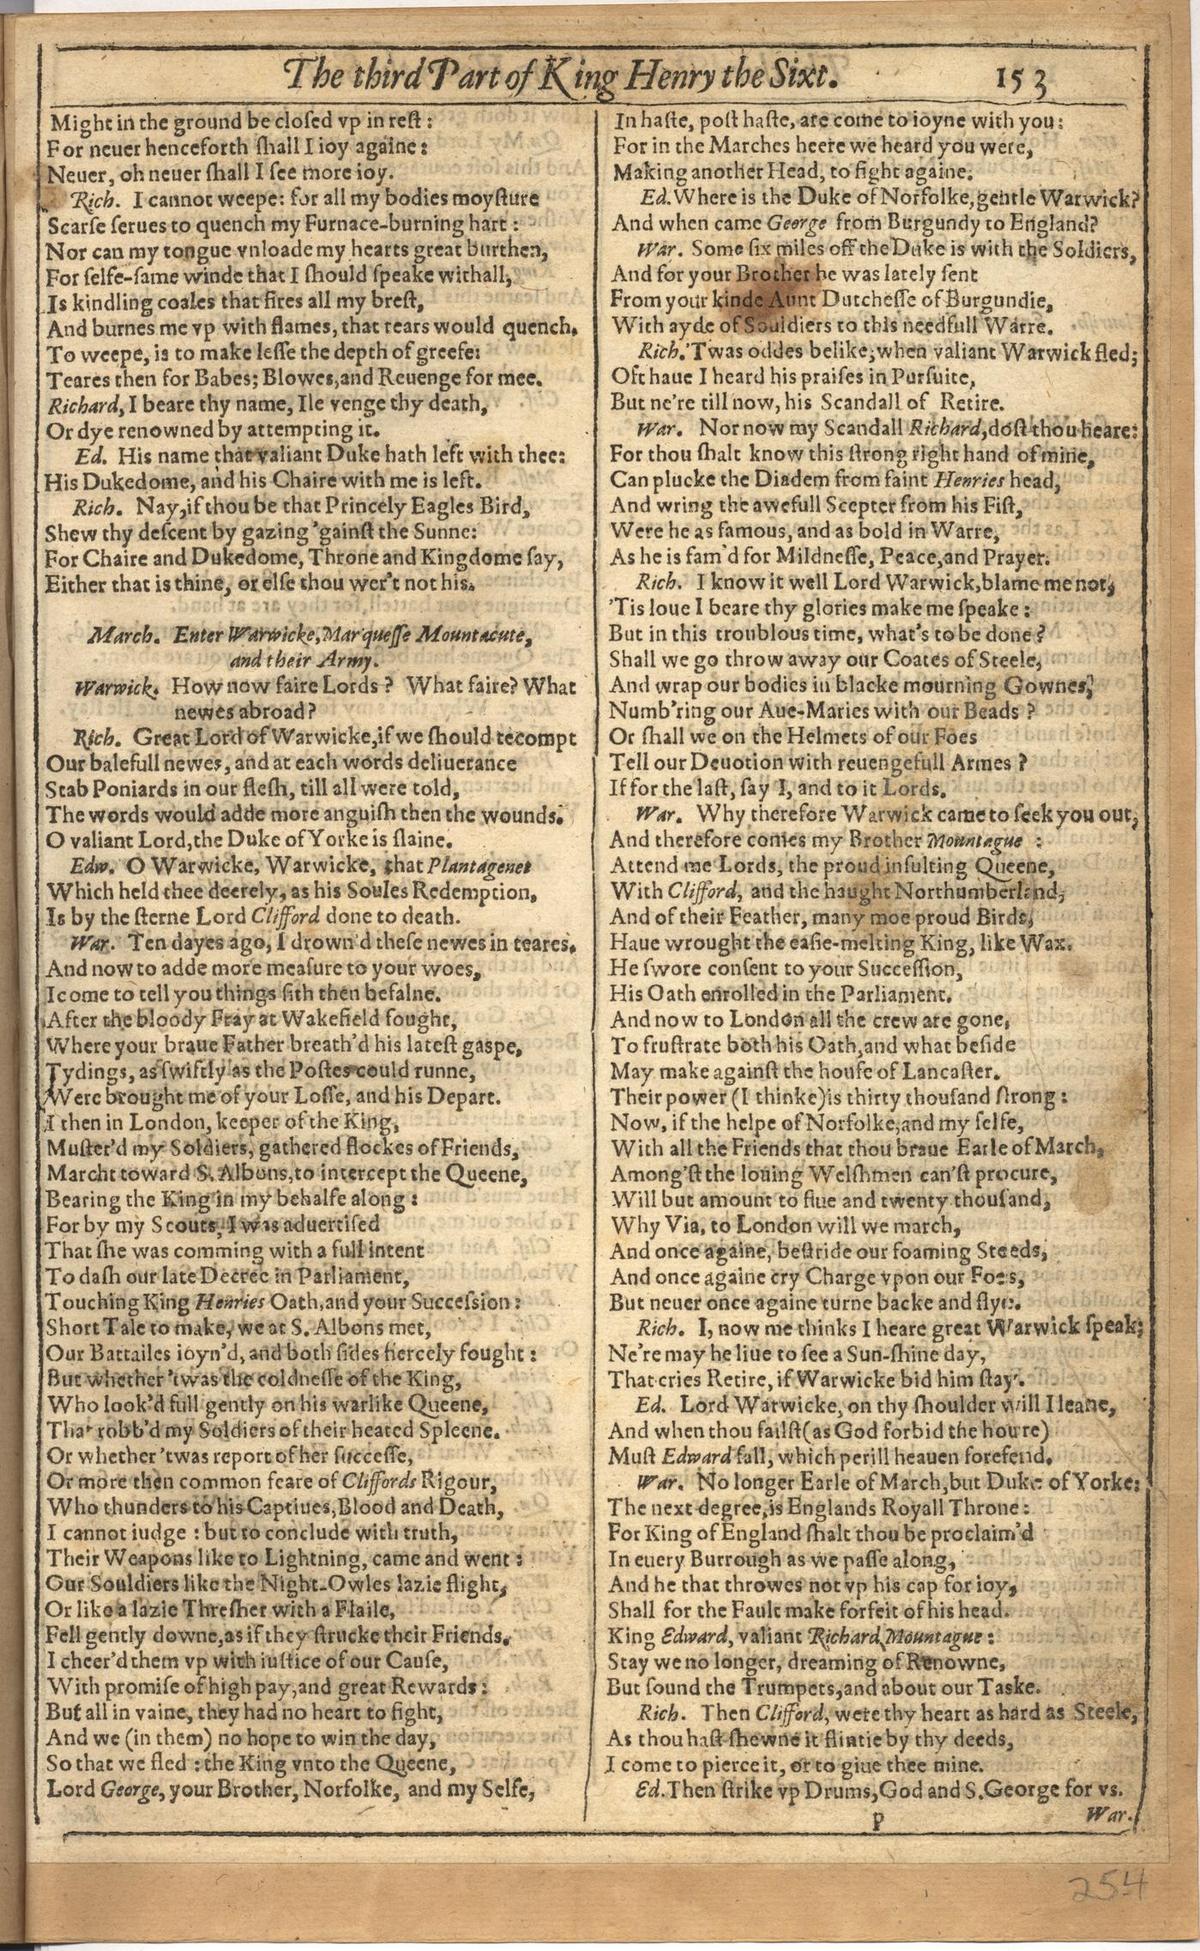 The third Part of King Henry the Sixt. 153
Might in the ground be closed vp in rest:
For neuer henceforth shall I ioy againe:
Neuer, oh neuer shall I see more ioy.
Rich. I cannot weepe: for all my bodies moysture
Scarse serues to quench my Furnace-burning hart:
Nor can my tongue vnloade my hearts great burthen,
For selfe-same winde that I should speake withall,
Is kindling coales that fires all my brest,
And burnes me vp with flames, that tears would quench.
To weepe, is to make lesse the depth of greefe:
Teares then for Babes; Blowes, and Reuenge for mee.
Richard, I beare thy name, Ile venge thy death,
Or dye renowned by attempting it.
Ed. His name that valiant Duke hath left with thee:
His Dukedome, and his Chaire with me is left.
Rich. Nay, if thou be that Princely Eagles Bird,
Shew thy descent by gazing 'gainst the Sunne:
For Chaire and Dukedome, Throne and Kingdome say,
Either that is thine, or else thou wer't not his.
March. Enter Warwicke, Marquesse Mountacute,
and their Army.
Warwick. How now faire Lords? What faire? What
newes abroad?
Rich. Great Lord of Warwicke, if we should recompt
Our balefull newes, and at each words deliuerance
Stab Poniards in our flesh, till all were told,
The words would adde more anguish then the wounds.
O valiant Lord, the Duke of Yorke is slaine.
Edw. O Warwicke, Warwicke, that Plantagenet
Which held thee deerely, as his Soules Redemption,
Is by the sterne Lord Clifford done to death.
War. Ten dayes ago, I drown'd these newes in teares.
And now to adde more measure to your woes,
I come to tell you things sith then befalne.
After the bloody Fray at Wakefield fought,
Where your braue Father breath'd his latest gaspe,
Tydings, as swiftly as the Postes could runne,
Were brought me of your Losse, and his Depart.
I then in London, keeper of the King,
Muster'd my Soldiers, gathered flockes of Friends,
Marcht toward S. Albons, to intercept the Queene,
Bearing the King in my behalfe along:
For by my Scouts, I was aduertised
That she was comming with a full intent
To dash our late Decree in Parliament,
Touching King Henries Oath, and your Succession:
Short Tale to make, we at S. Albons met,
Our Battailes ioyn'd, and both sides fiercely fought:
But whether 'twas the coldnesse of the King,
Who look'd full gently on his warlike Queene,
That robb'd my Soldiers of their heated Spleene.
Or whether 'twas report of her successe,
Or more then common feare of Cliffords Rigour,
Who thunders to his Captiues, Blood and Death,
I cannot iudge: but to conclude with truth,
Their Weapons like to Lightning, came and went:
Our Souldiers like the Night-Owles lazie flight,
Or like a lazie Thresher with a Flaile,
Fell gently downe, as if they strucke their Friends.
I cheer'd them vp with iustice of our Cause,
With promise of high pay, and great Rewards:
But all in vaine, they had no heart to fight,
And we (in them) no hope to win the day,
So that we fled: the King vnto the Queene,
Lord George, your Brother, Norfolke, and my Selfe,
In haste, post haste, are come to ioyne with you:
For in the Marches heere we heard you were,
Making another Head, to fight againe.
Ed. Where is the Duke of Norfolke, gentle Warwick?
And when came George from Burgundy to England?
War. Some six miles off the Duke is with the Soldiers,
And for your Brother he was lately sent
From your kinde Aunt Dutchesse of Burgundie,
With ayde of Souldiers to this needfull Warre.
Rich. 'Twas oddes belike, when valiant Warwick fled;
Oft haue I heard his praises in Pursuite,
But ne're till now, his Scandall of Retire.
War. Nor now my Scandall Richard, dost thou heare:
For thou shalt know this strong right hand of mine,
Can plucke the Diadem from faint Henries head,
And wring the awefull Scepter from his Fist,
Were he as famous, and as bold in Warre,
As he is fam'd for Mildnesse, Peace, and Prayer.
Rich. I know it well Lord Warwick, blame me not,
'Tis loue I beare thy glories make me speake:
But in this troublous time, what's to be done?
Shall we go throw away our Coates of Steele,
And wrap our bodies in blacke mourning Gownes,
Numb'ring our Aue-Maries with our Beads?
Or shall we on the Helmets of our Foes
Tell our Deuotion with reuengefull Armes?
If for the last, say I, and to it Lords.
War. Why therefore Warwick came to seek you out,
And therefore comes my Brother Mountague:
Attend me Lords, the proud insulting Queene,
With Clifford, and the haught Northumberland,
And of their Feather, many moe proud Birds,
Haue wrought the easie-melting King, like Wax.
He swore consent to your Succession,
His Oath enrolled in the Parliament.
And now to London all the crew are gone,
To frustrate both his Oath, and what beside
May make against the house of Lancaster.
Their power (I thinke) is thirty thousand strong:
Now, if the helpe of Norfolke, and my selfe,
With all the Friends that thou braue Earle of March,
Among'st the louing Welshmen can'st procure,
Will but amount to fiue and twenty thousand,
Why Via, to London will we march,
And once againe, bestride our foaming Steeds,
And once againe cry Charge vpon our Foes,
But neuer once againe turne backe and flye.
Rich. I, now me thinks I heare great Warwick speak;
Ne're may he liue to see a Sun-shine day,
That cries Retire, if Warwicke bid him stay.
Ed. Lord Warwicke, on thy shoulder will I leane,
And when thou failst (as God forbid the houre)
Must Edward fall, which perill heauen forefend.
War. No longer Earle of March, but Duke of Yorke:
The next degree, is Englands Royall Throne:
For King of England shalt thou be proclaim'd
In euery Burrough as we passe along,
And he that throwes not vp his cap for ioy,
Shall for the Fault make forfeit of his head.
King Edward, valiant Richard Mountague:
Stay we no longer, dreaming of Renowne,
But sound the Trumpets, and about our Taske.
Rich. Then Clifford, were thy heart as hard as Steele,
As thou hast shewne it flintie by thy deeds,
I come to pierce it, or to giue thee mine.
Ed. Then strike vp Drums, God and S. George for vs.
p War.
254